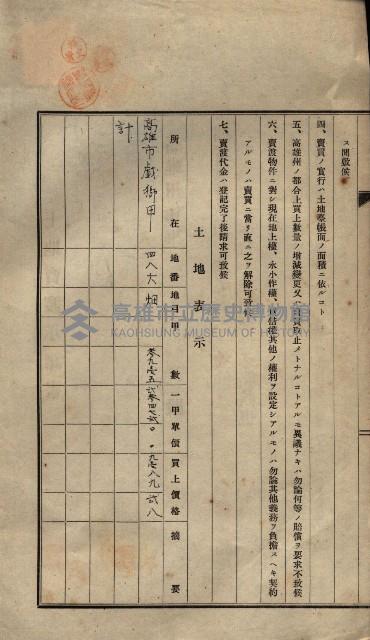 ス間敷候
四、賣買ノ實行ハ土地臺帳面ノ面積ニ依ルコト
五、高雄州ノ都合上買上數量ノ增減變更又ハ買取止メトナルコトアルモ異議ナキハ勿論何等ノ賠償ヲ要求不致候
六、賣渡物件ニ對シ現在地上權、永小作權、賃借權其他ノ權利ヲ設定シアルモノハ勿論其他義務ヲ負擔スヘキ契約
アルモノハ賣買ニ當リ直ニ之ヲ解除可致候
七、賣渡代金ハ登記完了後請求可致候
土地表示
所在 地番 地目 甲數 一甲單價 買上價格 摘要
高雄市戲獅甲 四八六 畑
計
高雄市立歷史博物館
KAOHSIUNG MUSEUM OF HISTORY